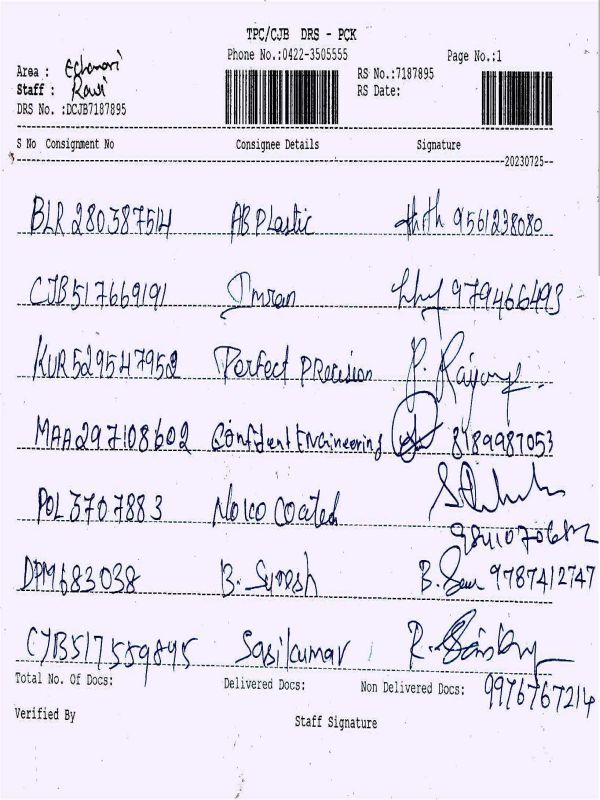 TPC/CJB DRS - PCK
Phone No.:0422-3505555
Page No.:1
Area : Echanari
Staff : Ravi
DRS No. :DCJB7187895
RS No.:7187895
RS Date:
S No Consignment No Consignee Details Signature
20230725
BLR 280387514 AB Plastic 9561238080
CJB517669191 Imran 979466493
KUR529547952 Perfect Precision P.
MAA297108602 Confident Engineering 8189987053
POL3707883 Noico Coated
DPM683038 B. Suresh B. 9787412747
CJB517559895 Sasikumar R.
9976767214
Total No. Of Docs: Delivered Docs: Non Delivered Docs:
Verified By
Staff Signature